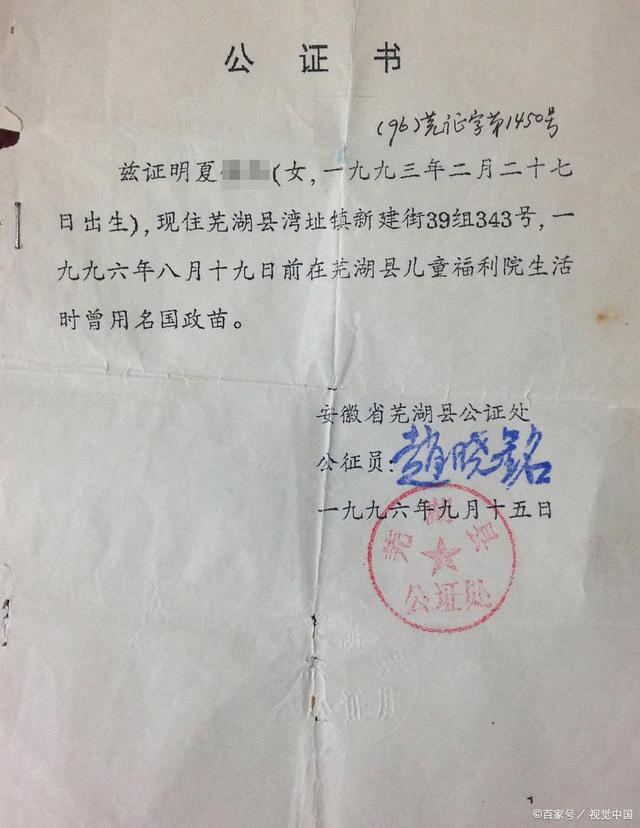 公证书
(96)芜证字第1450号
兹证明夏(女,一九九三年二月二十七
日出生),现住芜湖县湾址镇新建街39组343号,一
九九六年八月十九日前在芜湖县儿童福利院生活
时曾用名国政苗。
安徽省芜湖县公证处
公征员:赵晓铭
一九九六年九月十五日
芜湖县
公证处
©百家号/视觉中国